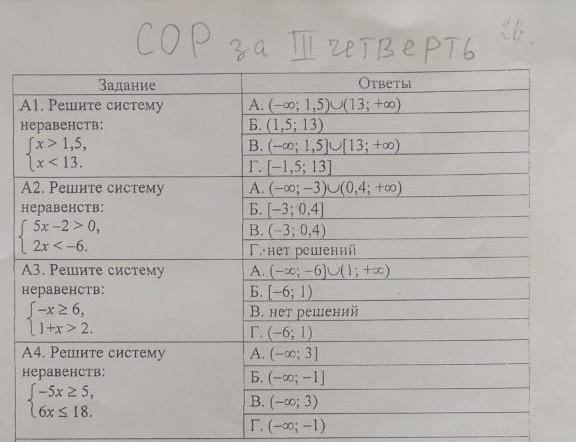 СОР за III четверть 2в.
Задание
Ответы
А1. Решите систему
неравенств:
x > 1,5,
x < 13.
А. (−∞; 1,5)∪(13; +∞)
Б. (1,5; 13)
В. (−∞; 1,5]∪[13; +∞)
Г. [−1,5; 13]
А2. Решите систему
неравенств:
5x −2 > 0,
2x < −6.
А. (−∞; −3)∪(0,4; +∞)
Б. [−3; 0,4]
В. (−3; 0,4)
Г. нет решений
А3. Решите систему
неравенств:
−x ≥ 6,
1+x > 2.
А. (−∞; −6]∪(1; +∞)
Б. [−6; 1)
В. нет решений
Г. (−6; 1)
А4. Решите систему
неравенств:
−5x ≥ 5,
6x ≤ 18.
А. (−∞; 3]
Б. (−∞; −1]
В. (−∞; 3)
Г. (−∞; −1)